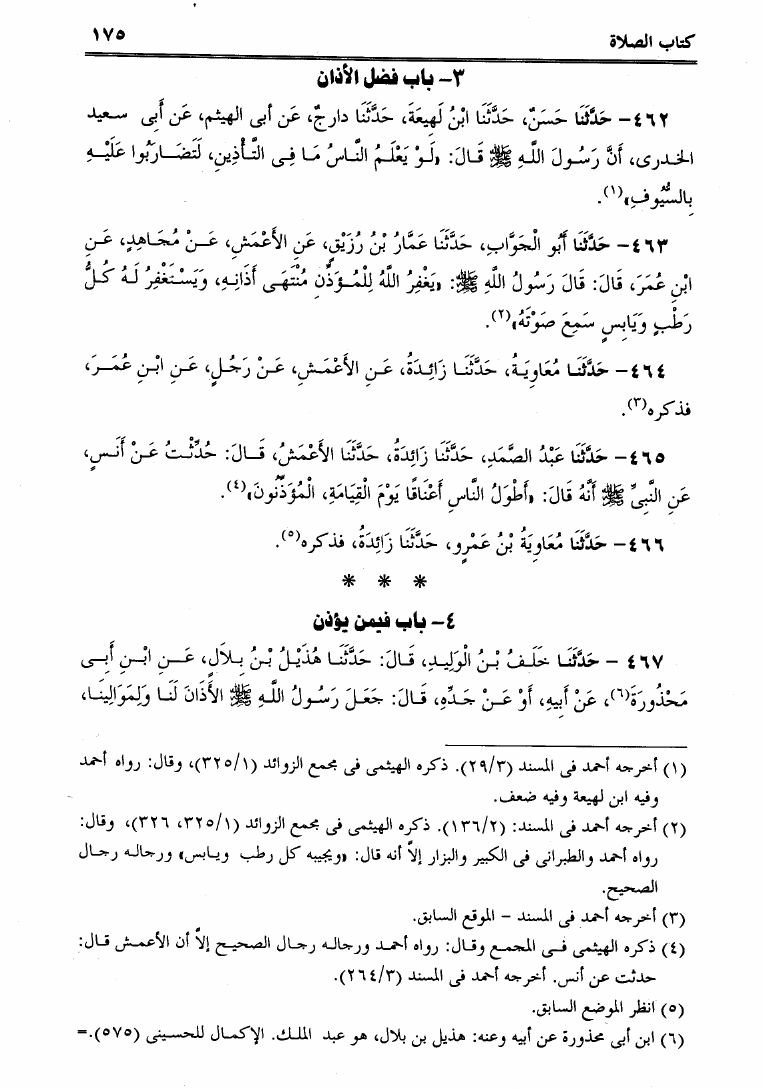 كتاب الصلاة ١٧٥
٣- باب فضل الأذان
٤٦٢- حَدَّثَنَا حَسَنٌ، حَدَّثَنَا ابْنُ لَهِيعَةَ، حَدَّثَنَا دارجٌ، عَن أبى الهيثم، عَن أَبِى سعيد
الخدرى، أَنَّ رَسُولَ اللَّهِ ﷺ قَالَ: «لَوْ يَعْلَمُ النَّاسُ مَا فِى التَّأْذِينِ، لَتَضَارَبُوا عَلَيْهِ
بِالسُّيُوفِ»(١).
٤٦٣- حَدَّثَنَا أَبُو الْجَوَّابِ، حَدَّثَنَا عَمَّارُ بْنُ رُزَيْقٍ، عَنِ الأَعْمَشِ، عَنْ مُجَاهِدٍ، عَنِ
ابْنِ عُمَرَ، قَالَ: قَالَ رَسُولُ اللَّهِ ﷺ: «يَغْفِرُ اللَّهُ لِلْمُؤَذِّنِ مُنْتَهَى أَذَانِهِ، وَيَسْتَغْفِرُ لَهُ كُلُّ
رَطْبٍ وَيَابِسٍ سَمِعَ صَوْتَهُ»(٢).
٤٦٤- حَدَّثَنَا مُعَاوِيَةُ، حَدَّثَنَا زَائِدَةُ، عَنِ الأَعْمَشِ، عَنْ رَجُلٍ، عَنِ ابْنِ عُمَرَ،
فذكره(٣).
٤٦٥- حَدَّثَنَا عَبْدُ الصَّمَدِ، حَدَّثَنَا زَائِدَةُ، حَدَّثَنَا الأَعْمَشُ، قَالَ: حُدِّثْتُ عَنْ أَنَسٍ،
عَنِ النَّبِىِّ ﷺ أَنَّهُ قَالَ: «أَطْوَلُ النَّاسِ أَعْنَاقًا يَوْمَ الْقِيَامَةِ، الْمُؤَذِّنُونَ»(٤).
٤٦٦- حَدَّثَنَا مُعَاوِيَةُ بْنُ عَمْرٍو، حَدَّثَنَا زَائِدَةُ، فذكره(٥).
* * *
٤- باب فيمن يؤذن
٤٦٧- حَدَّثَنَا خَلَفُ بْنُ الْوَلِيدِ، قَالَ: حَدَّثَنَا هُذَيْلُ بْنُ بِلَالٍ، عَنِ ابْنِ أَبِى
مَحْذُورَةَ(٦)، عَنْ أَبِيهِ، أَوْ عَنْ جَدِّهِ، قَالَ: جَعَلَ رَسُولُ اللَّهِ ﷺ الأَذَانَ لَنَا وَلِمَوَالِينَا،
(١) أخرجه أحمد فى المسند (٢٩/٣). ذكره الهيثمى فى مجمع الزوائد (٣٢٥/١)، وقال: رواه أحمد
وفيه ابن لهيعة وفيه ضعف.
(٢) أخرجه أحمد فى المسند: (١٣٦/٢). ذكره الهيثمى فى مجمع الزوائد (٣٢٥/١، ٣٢٦)، وقال:
رواه أحمد والطبرانى فى الكبير والبزار إلاَّ أنه قال: «ويجيبه كل رطب ويابس» ورجاله رجال
الصحيح.
(٣) أخرجه أحمد فى المسند - الموقع السابق.
(٤) ذكره الهيثمى فى المجمع وقال: رواه أحمد ورجاله رجال الصحيح إلاَّ أن الأعمش قال:
حدثت عن أنس. أخرجه أحمد فى المسند (٢٦٤/٣).
(٥) انظر الموضع السابق.
(٦) ابن أبى محذورة عن أبيه وعنه: هذيل بن بلال، هو عبد الملك. الإكمال للحسينى (٥٧٥).=